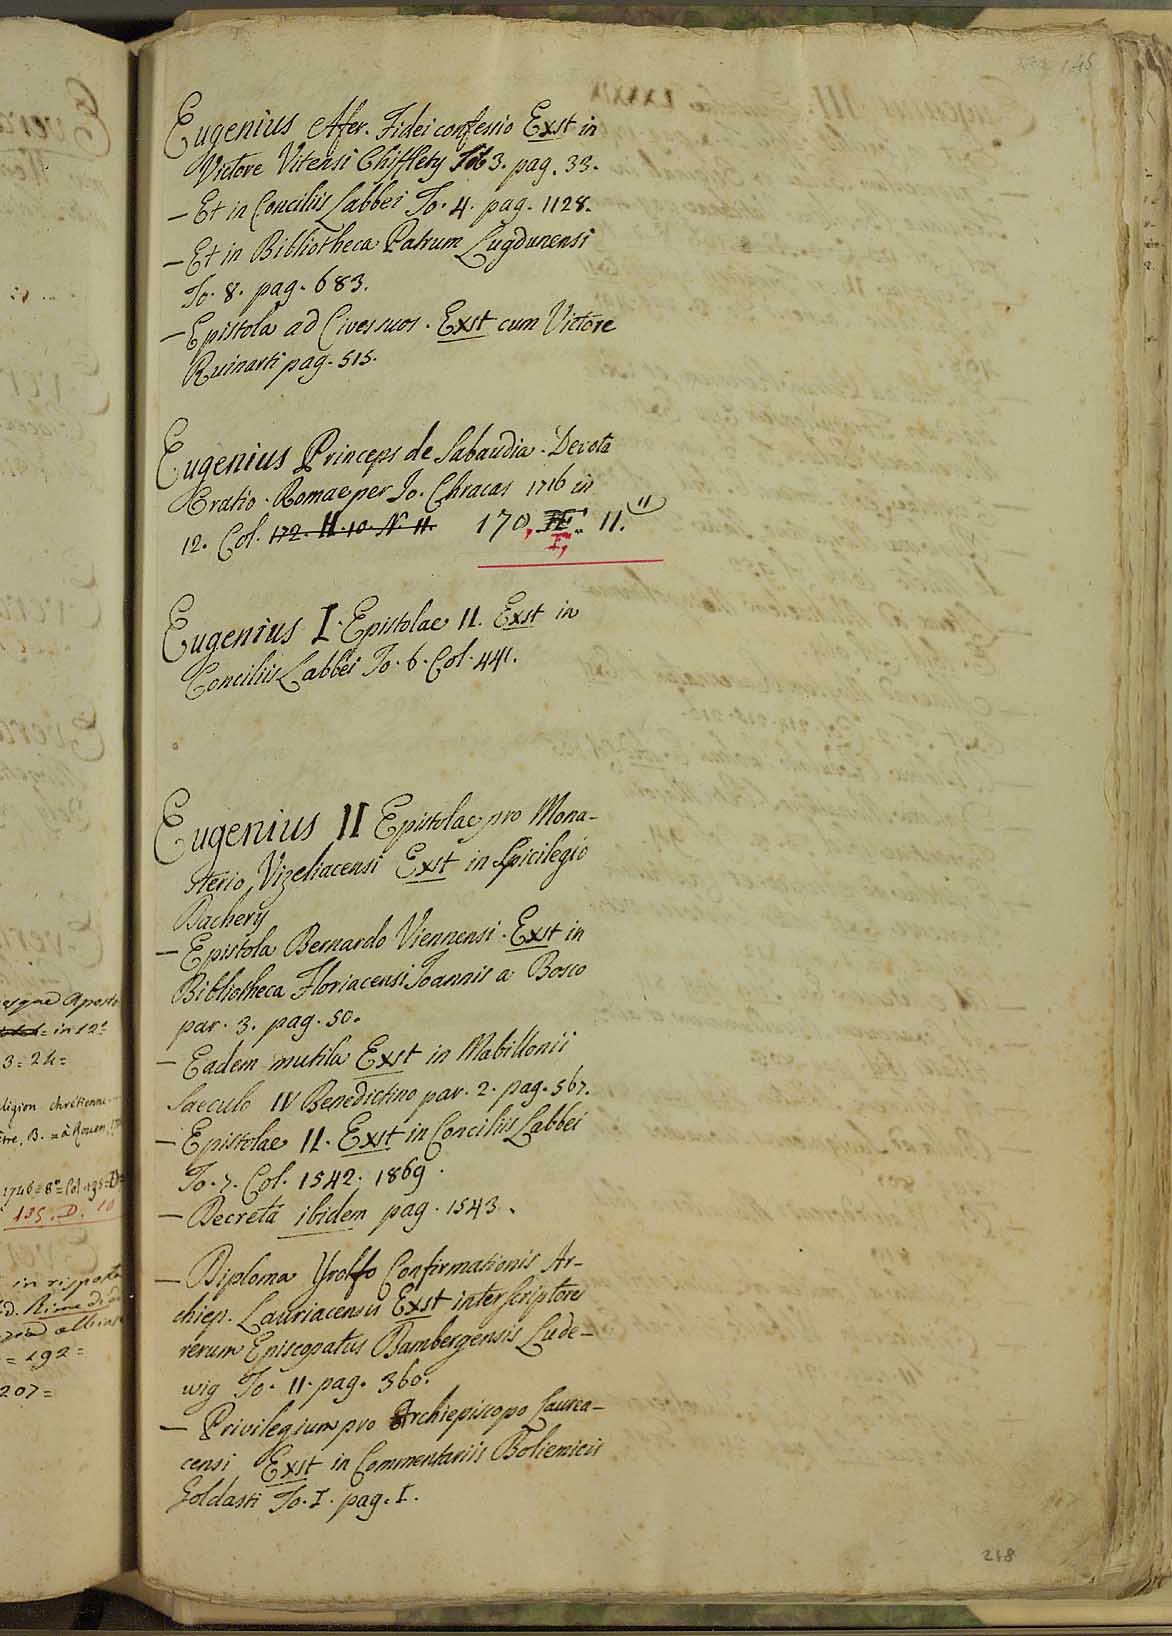 145
Eugenius Afer. Fidei confessio Exst in
Victore Vitensi Chiffletij 3. pag. 33.
— Et in Conciliis Labbei To. 4. pag. 1128.
— Et in Bibliotheca Patrum Lugdunensi
To. 8. pag. 683.
— Epistola ad Cives suos. Exst cum Victore
Ruinarti pag. 515.
Eugenius Princeps de Sabaudia. Devota
Oratio. Romae per Jo. Chracas 1716 in
12. Col. 172. II. 10. N. 11. 170, I, 11. 11
Eugenius I. Epistolae II. Exst in
Conciliis Labbei To. 6. Col. 441.
Eugenius II Epistolae pro Mona-
sterio Vizeliacensi Exst in Spicilegio
Dacherij
— Epistola Bernardo Viennensi. Exst in
Bibliotheca Floriacensi Joannis a Bosco
par. 3. pag. 50.
— Eadem mutila Exst in Mabillonii
Saeculo IV Benedictino par. 2. pag. 567.
— Epistolae II. Exst in Conciliis Labbei
To. 7. Col. 1542. 1869.
— Decreta ibidem pag. 1543.
— Diploma Yrolfo Confirmationis Ar-
chiep. Lauriacensis Exst inter scriptores
rerum Episcopatus Bambergensis Lude-
wig To. II. pag. 360.
— Privilegium pro Archiepiscopo Laurea-
censi Exst in Commentariis Bohemicis
Goldasti To. I. pag. I.
218
esque Aposto
= in 12°
3 = 24 =
ligion chrétienne
B. = à Rouen
1746 = 8° = Col. 135 = D =
135. D. 10
in risposta
d. Rime di
= 192 =
207 =